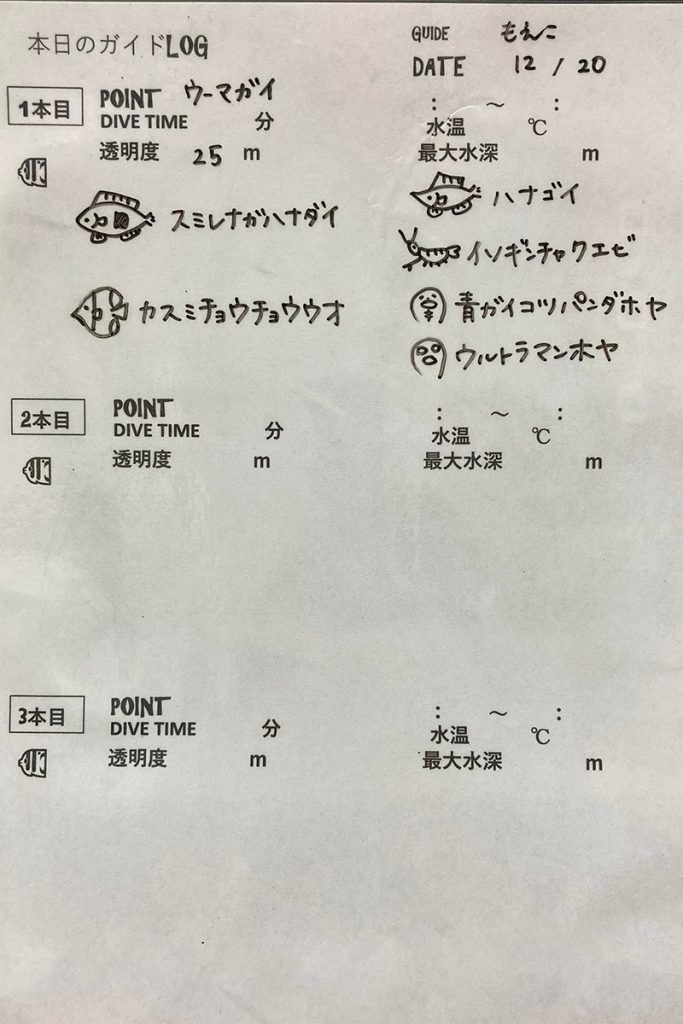 本日のガイドLOG
GUIDE もえこ
DATE 12 / 20
1本目 POINT ウーマガイ : ～ :
DIVE TIME 分 水温 ℃
透明度 25 m 最大水深 m
スミレナガハナダイ ハナゴイ
イソギンチャクエビ
カスミチョウチョウウオ 青ガイコツパンダホヤ
ウルトラマンホヤ
2本目 POINT : ～ :
DIVE TIME 分 水温 ℃
透明度 m 最大水深 m
3本目 POINT : ～ :
DIVE TIME 分 水温 ℃
透明度 m 最大水深 m